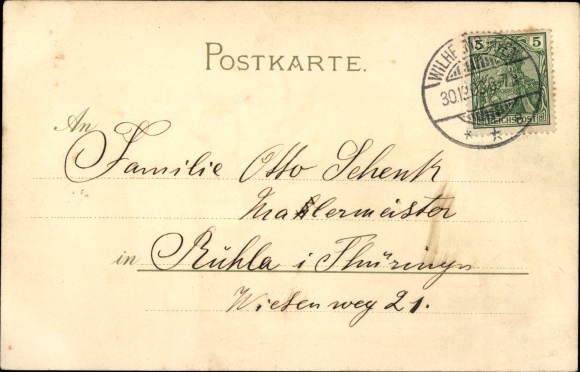 POSTKARTE.
5 5
REICHSPOST
30.12.
An
Familie Otto Schenk
Mahlermeister
in Ruhla i Thüringn
Wiesenweg 21.